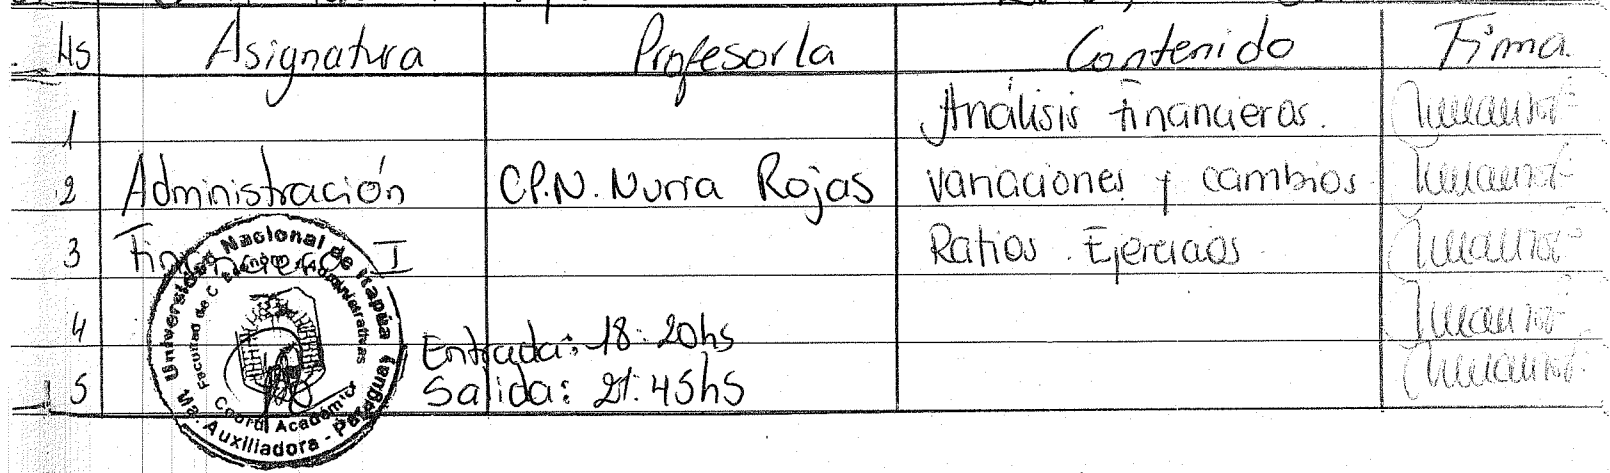 Hs Asignatura Profesor/a Contenido Firma
1 Análisis Financieros.
2 Administración C.P.N. Nurra Rojas variaciones y cambios
3 Financiera I Ratios. Ejercicios
4
Entrada: 18:20hs
5 Salida: 21:45hs
Universidad Nacional de Itapúa
Facultad de C. Económ. y Administrativas
Coord. Académica
Ma. Auxiliadora - Paraguay